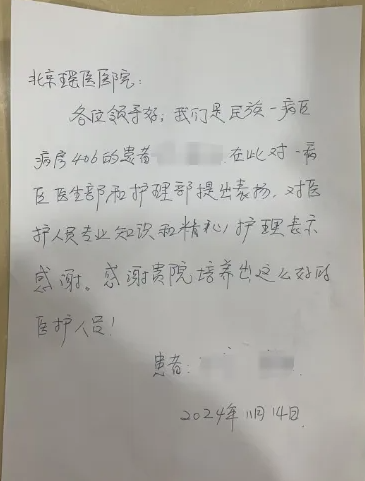 北京瑶医医院:
各位领导好,我们是民族一病区
病房406的患者 在此对一病
区医生部和护理部提出表扬,对医
护人员专业知识和精心护理表示
感谢。感谢贵院培养出这么好的
医护人员!
患者:
2024年11月14日.